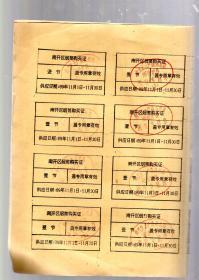 南开区烟筒购买证
壹节 盖专用章有效
供应日期:89年11月1日-11月30日
南开区烟筒购买证
壹节 盖专用章有效
供应日期:89年11月1日-11月30日
南开区烟筒购买证
壹节 盖专用章有效
供应日期:89年11月1日-11月30日
南开区烟筒购买证
壹节 盖专用章有效
供应日期:89年11月1日-11月30日
南开区烟筒购买证
壹节 盖专用章有效
供应日期:89年11月1日-11月30日
南开区烟筒购买证
壹节 盖专用章有效
供应日期:89年11月1日-11月30日
南开区烟筒购买证
壹节 盖专用章有效
供应日期:89年11月1日-11月30日
南开区烟筒购买证
壹节 盖专用章有效
供应日期:89年11月1日-11月30日